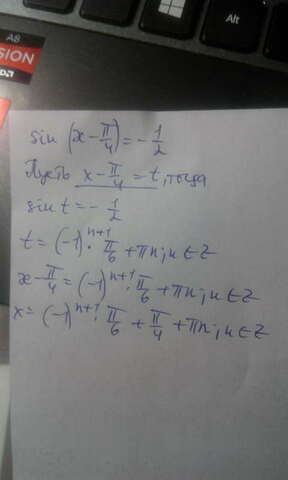 A8
SION
Alt
sin (x - π/4) = - 1/2
Пусть x - π/4 = t, тогда
sin t = - 1/2
t = (-1)^(n+1) · π/6 + πn; n ∈ Z
x - π/4 = (-1)^(n+1) · π/6 + πn; n ∈ Z
x = (-1)^(n+1) · π/6 + π/4 + πn; n ∈ Z